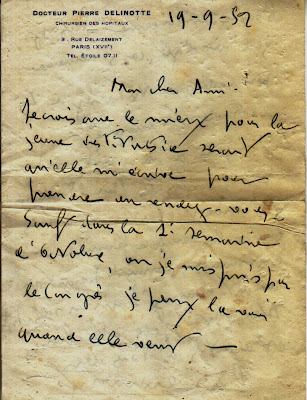 DOCTEUR PIERRE DELINOTTE
CHIRURGIEN DES HOPITAUX
3, RUE DELAIZEMENT
PARIS (XVIIe)
TEL. ÉTOILE 07.11
19-9-52
Mon cher Ami.
Je crois que le mieux pour la
jeune serait
qu'elle m'écrive pour
prendre un rendez-vous
Sauf dans la 1e semaine
d'Octobre, où je suis pris par
le Congrès je peux la voir
quand elle veut —